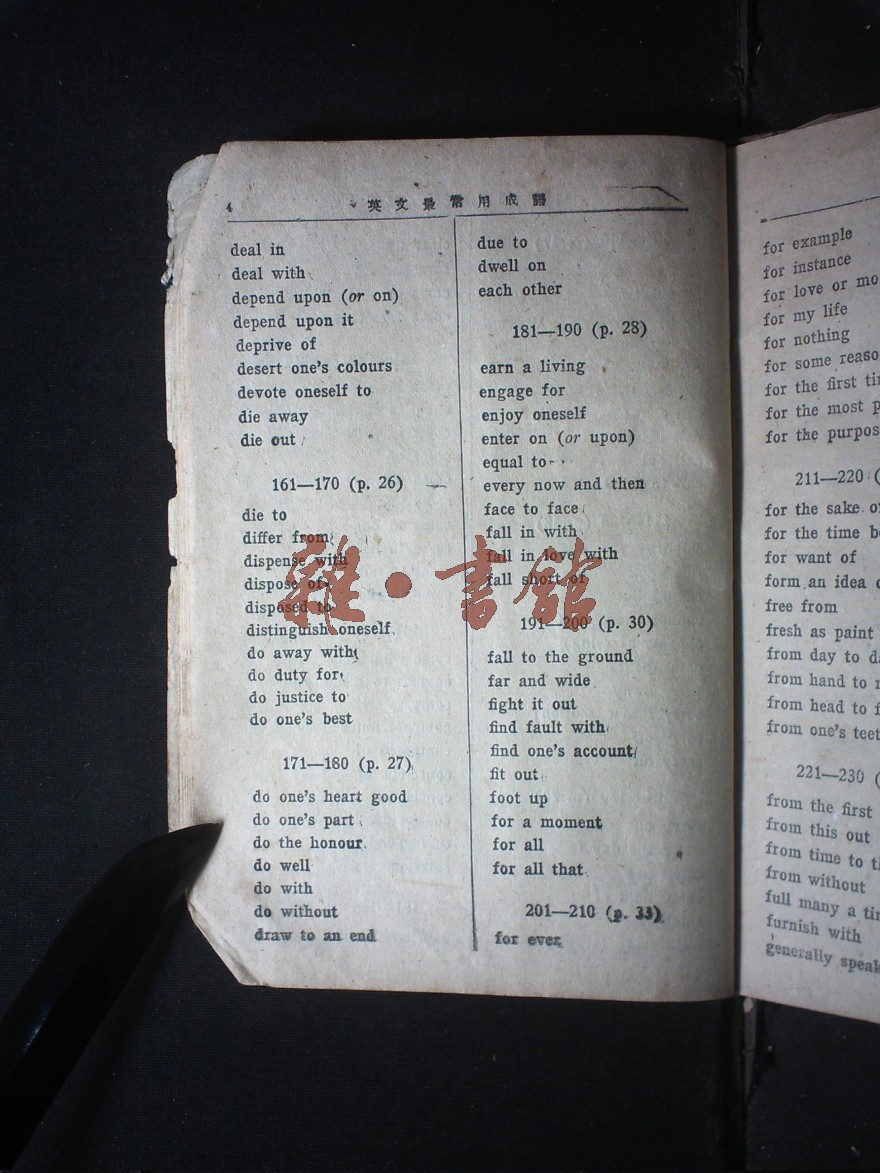 4
英文最常用成語
deal in
deal with
depend upon (or on)
depend upon it
deprive of
desert one's colours
devote oneself to
die away
die out
161—170 (p. 26)
die to
differ from
dispense with
dispose of
disposed to
distinguish oneself
do away with
do duty for
do justice to
do one's best
171—180 (p. 27)
do one's heart good
do one's part
do the honour
do well
do with
do without
draw to an end
due to
dwell on
each other
181—190 (p. 28)
earn a living
engage for
enjoy oneself
enter on (or upon)
equal to
every now and then
face to face
fall in with
fall in love with
fall short of
191—200 (p. 30)
fall to the ground
far and wide
fight it out
find fault with
find one's account
fit out
foot up
for a moment
for all
for all that
201—210 (p. 33)
for ever
雜·書館
for example
for instance
for love or mo
for my life
for nothing
for some reaso
for the first ti
for the most p
for the purpos
211—220 (
for the sake of
for the time b
for want of
form an idea o
free from
fresh as paint
from day to d
from hand to
from head to f
from one's teet
221—230 (
from the first
from this out
from time to ti
from without
full many a ti
furnish with
generally speak